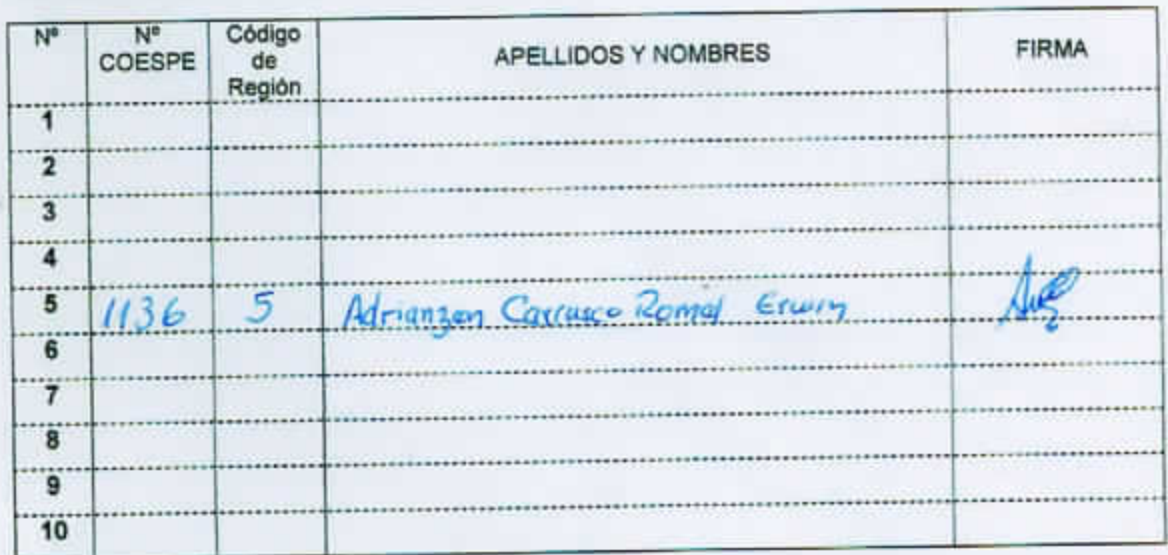 Nº Nº COESPE Código de Región APELLIDOS Y NOMBRES FIRMA
1
2
3
4
5 1136 5 Adrianzen Carrasco Romel Erwin
6
7
8
9
10